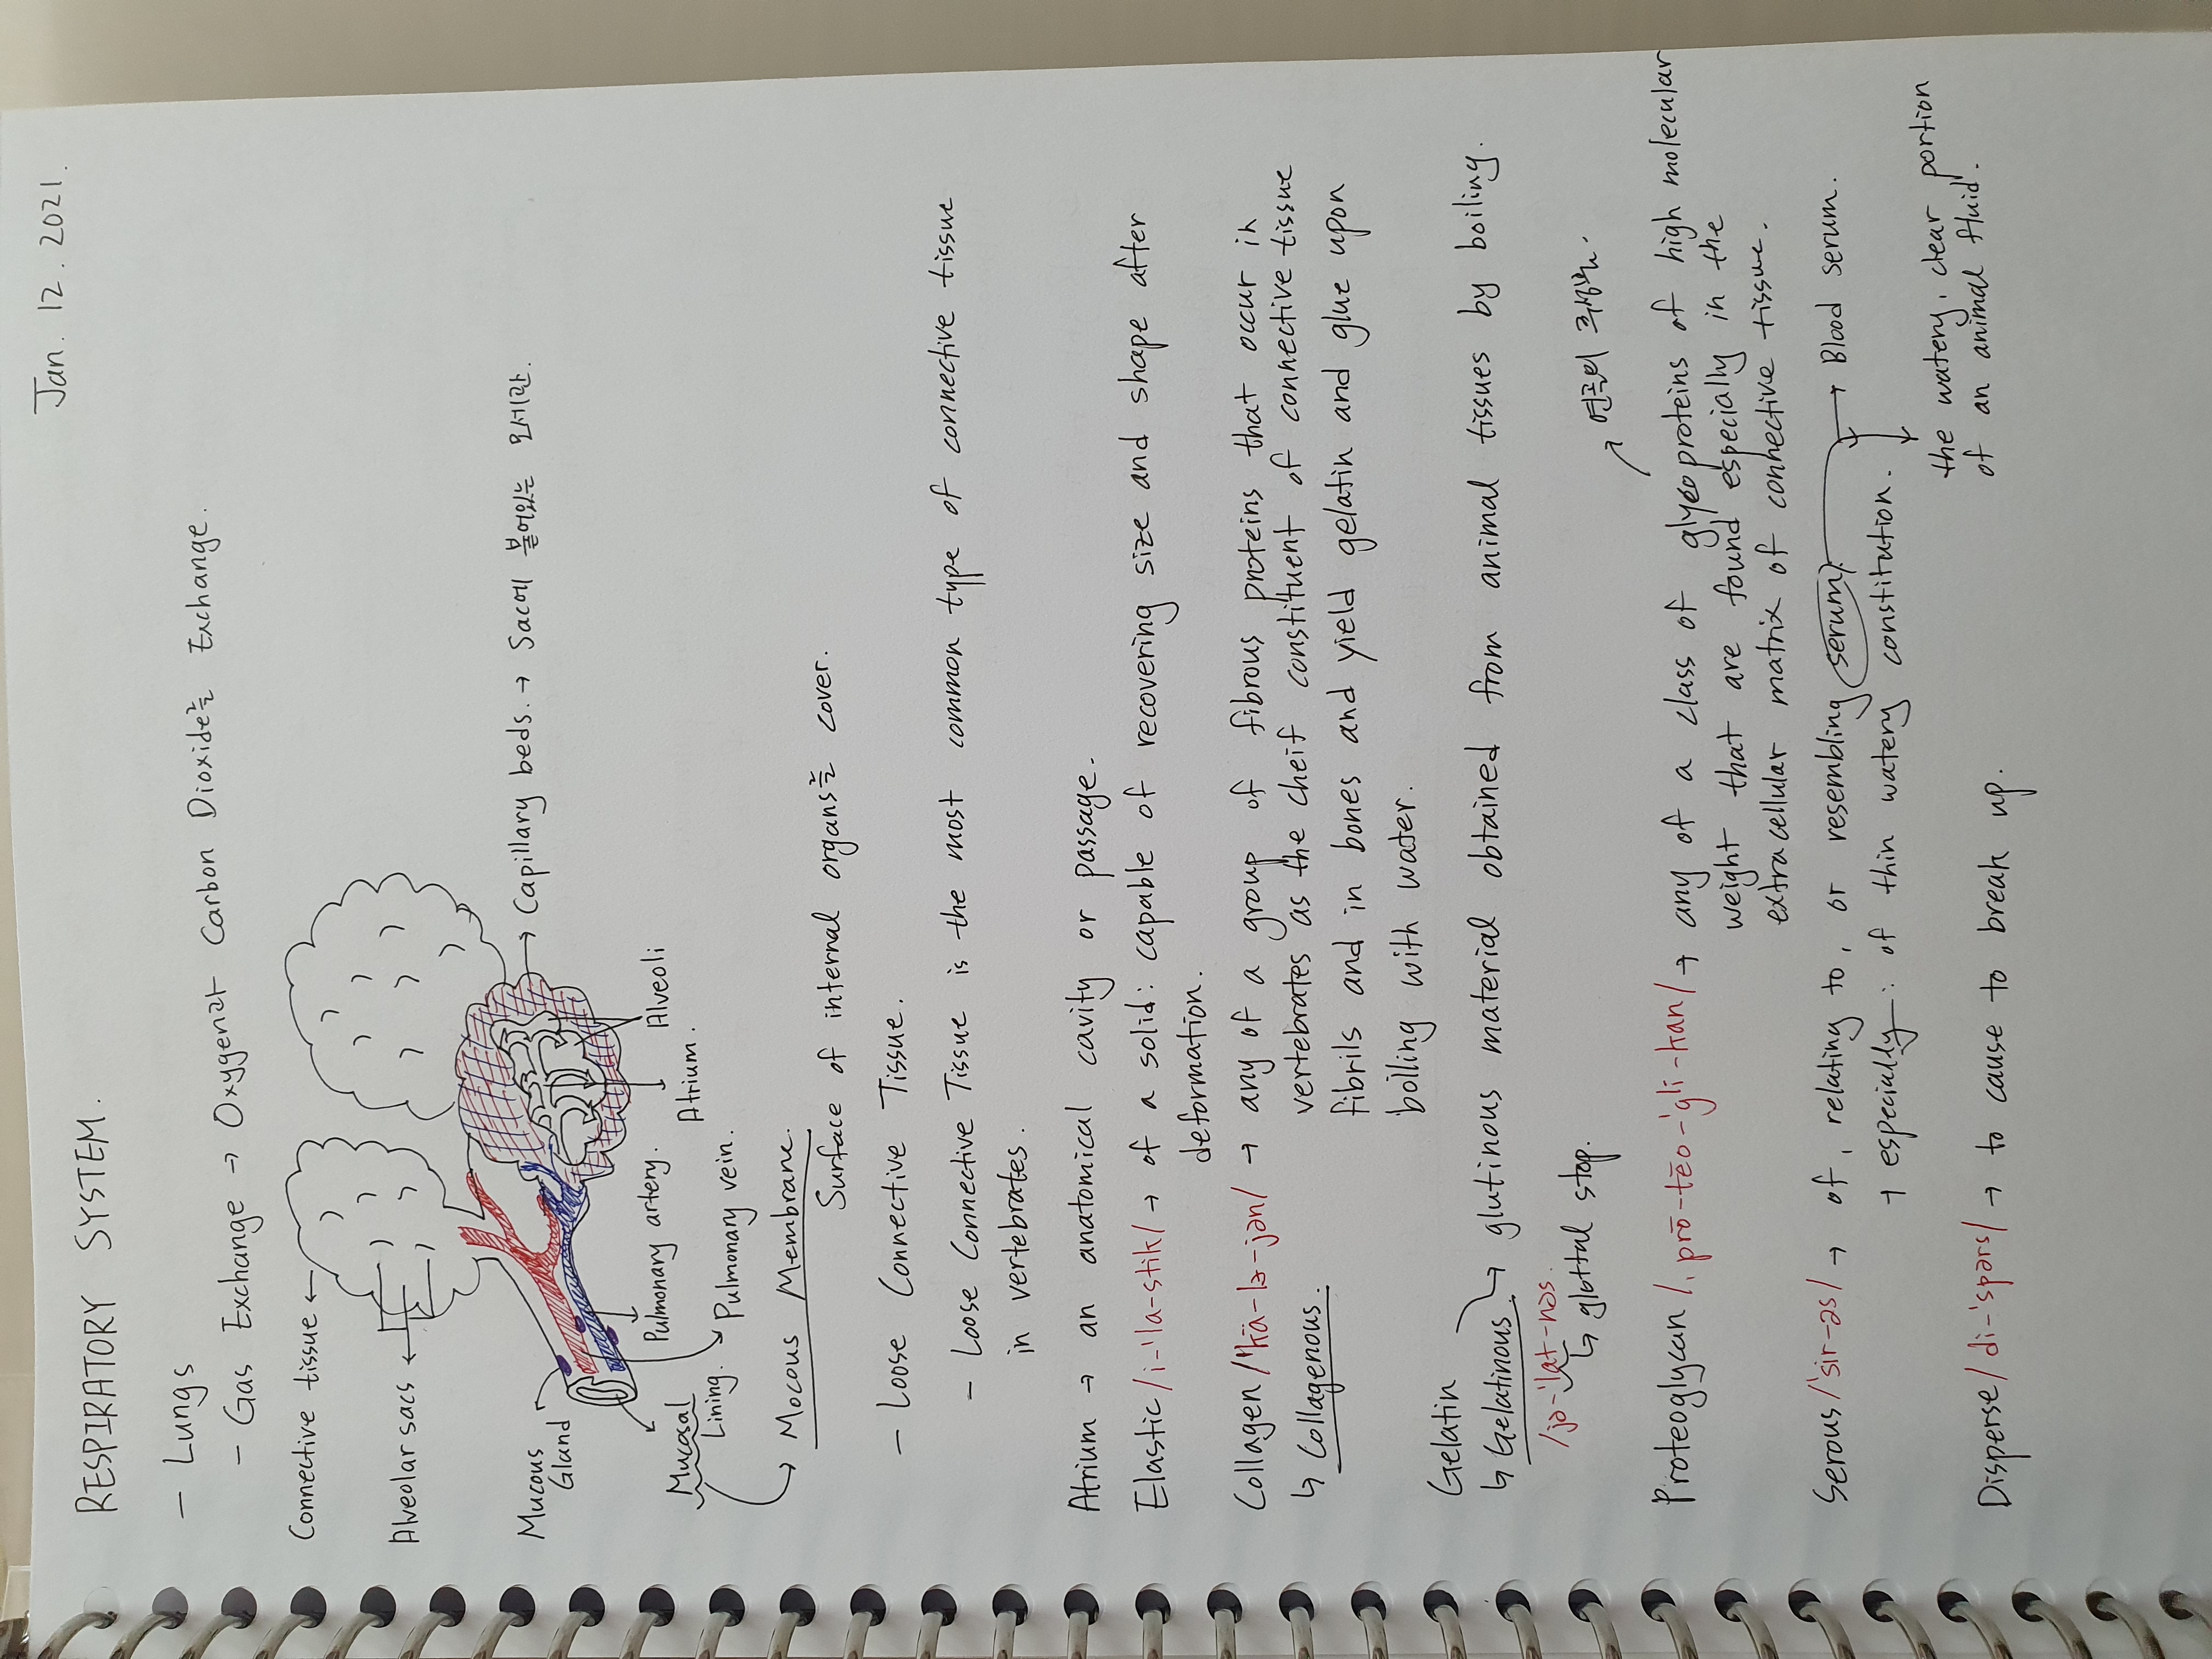 Jan. 12. 2021.
RESPIRATORY SYSTEM.
- Lungs
- Gas Exchange → Oxygen과 Carbon Dioxide를 Exchange.
Connective tissue ←
Alveolar sacs ←
→ Capillary beds. → Sac에 붙어있는 모세관.
Mucous
Gland
Alveoli
Atrium.
Pulmonary artery.
Pulmonary vein.
Mucosal
Lining.
→ Mocous Membrane.
Surface of internal organs를 cover.
- Loose Connective Tissue.
- Loose Connective Tissue is the most common type of connective tissue
in vertebrates.
Atrium → an anatomical cavity or passage.
Elastic /i-ˈla-stik/ → of a solid: capable of recovering size and shape after
deformation.
Collagen /ˈkä-lə-jən/ → any of a group of fibrous proteins that occur in
↳ Collagenous.
vertebrates as the cheif constituent of connective tissue
fibrils and in bones and yield gelatin and glue upon
boiling with water.
Gelatin
↳ Gelatinous. → glutinous material obtained from animal tissues by boiling.
/jə-ˈlat-nəs.
↳ glottal stop.
Proteoglycan /ˌprō-tēo-ˈglī-kan/ → any of a class of glycoproteins of high molecular
weight that are found especially in the
extracellular matrix of connective tissue.
Serous /ˈsir-əs/ → of, relating to, or resembling serum. → Blood serum.
→ especially: of thin watery constitution.
the watery, clear portion
of an animal fluid.
Disperse /di-ˈspərs/ → to cause to break up.